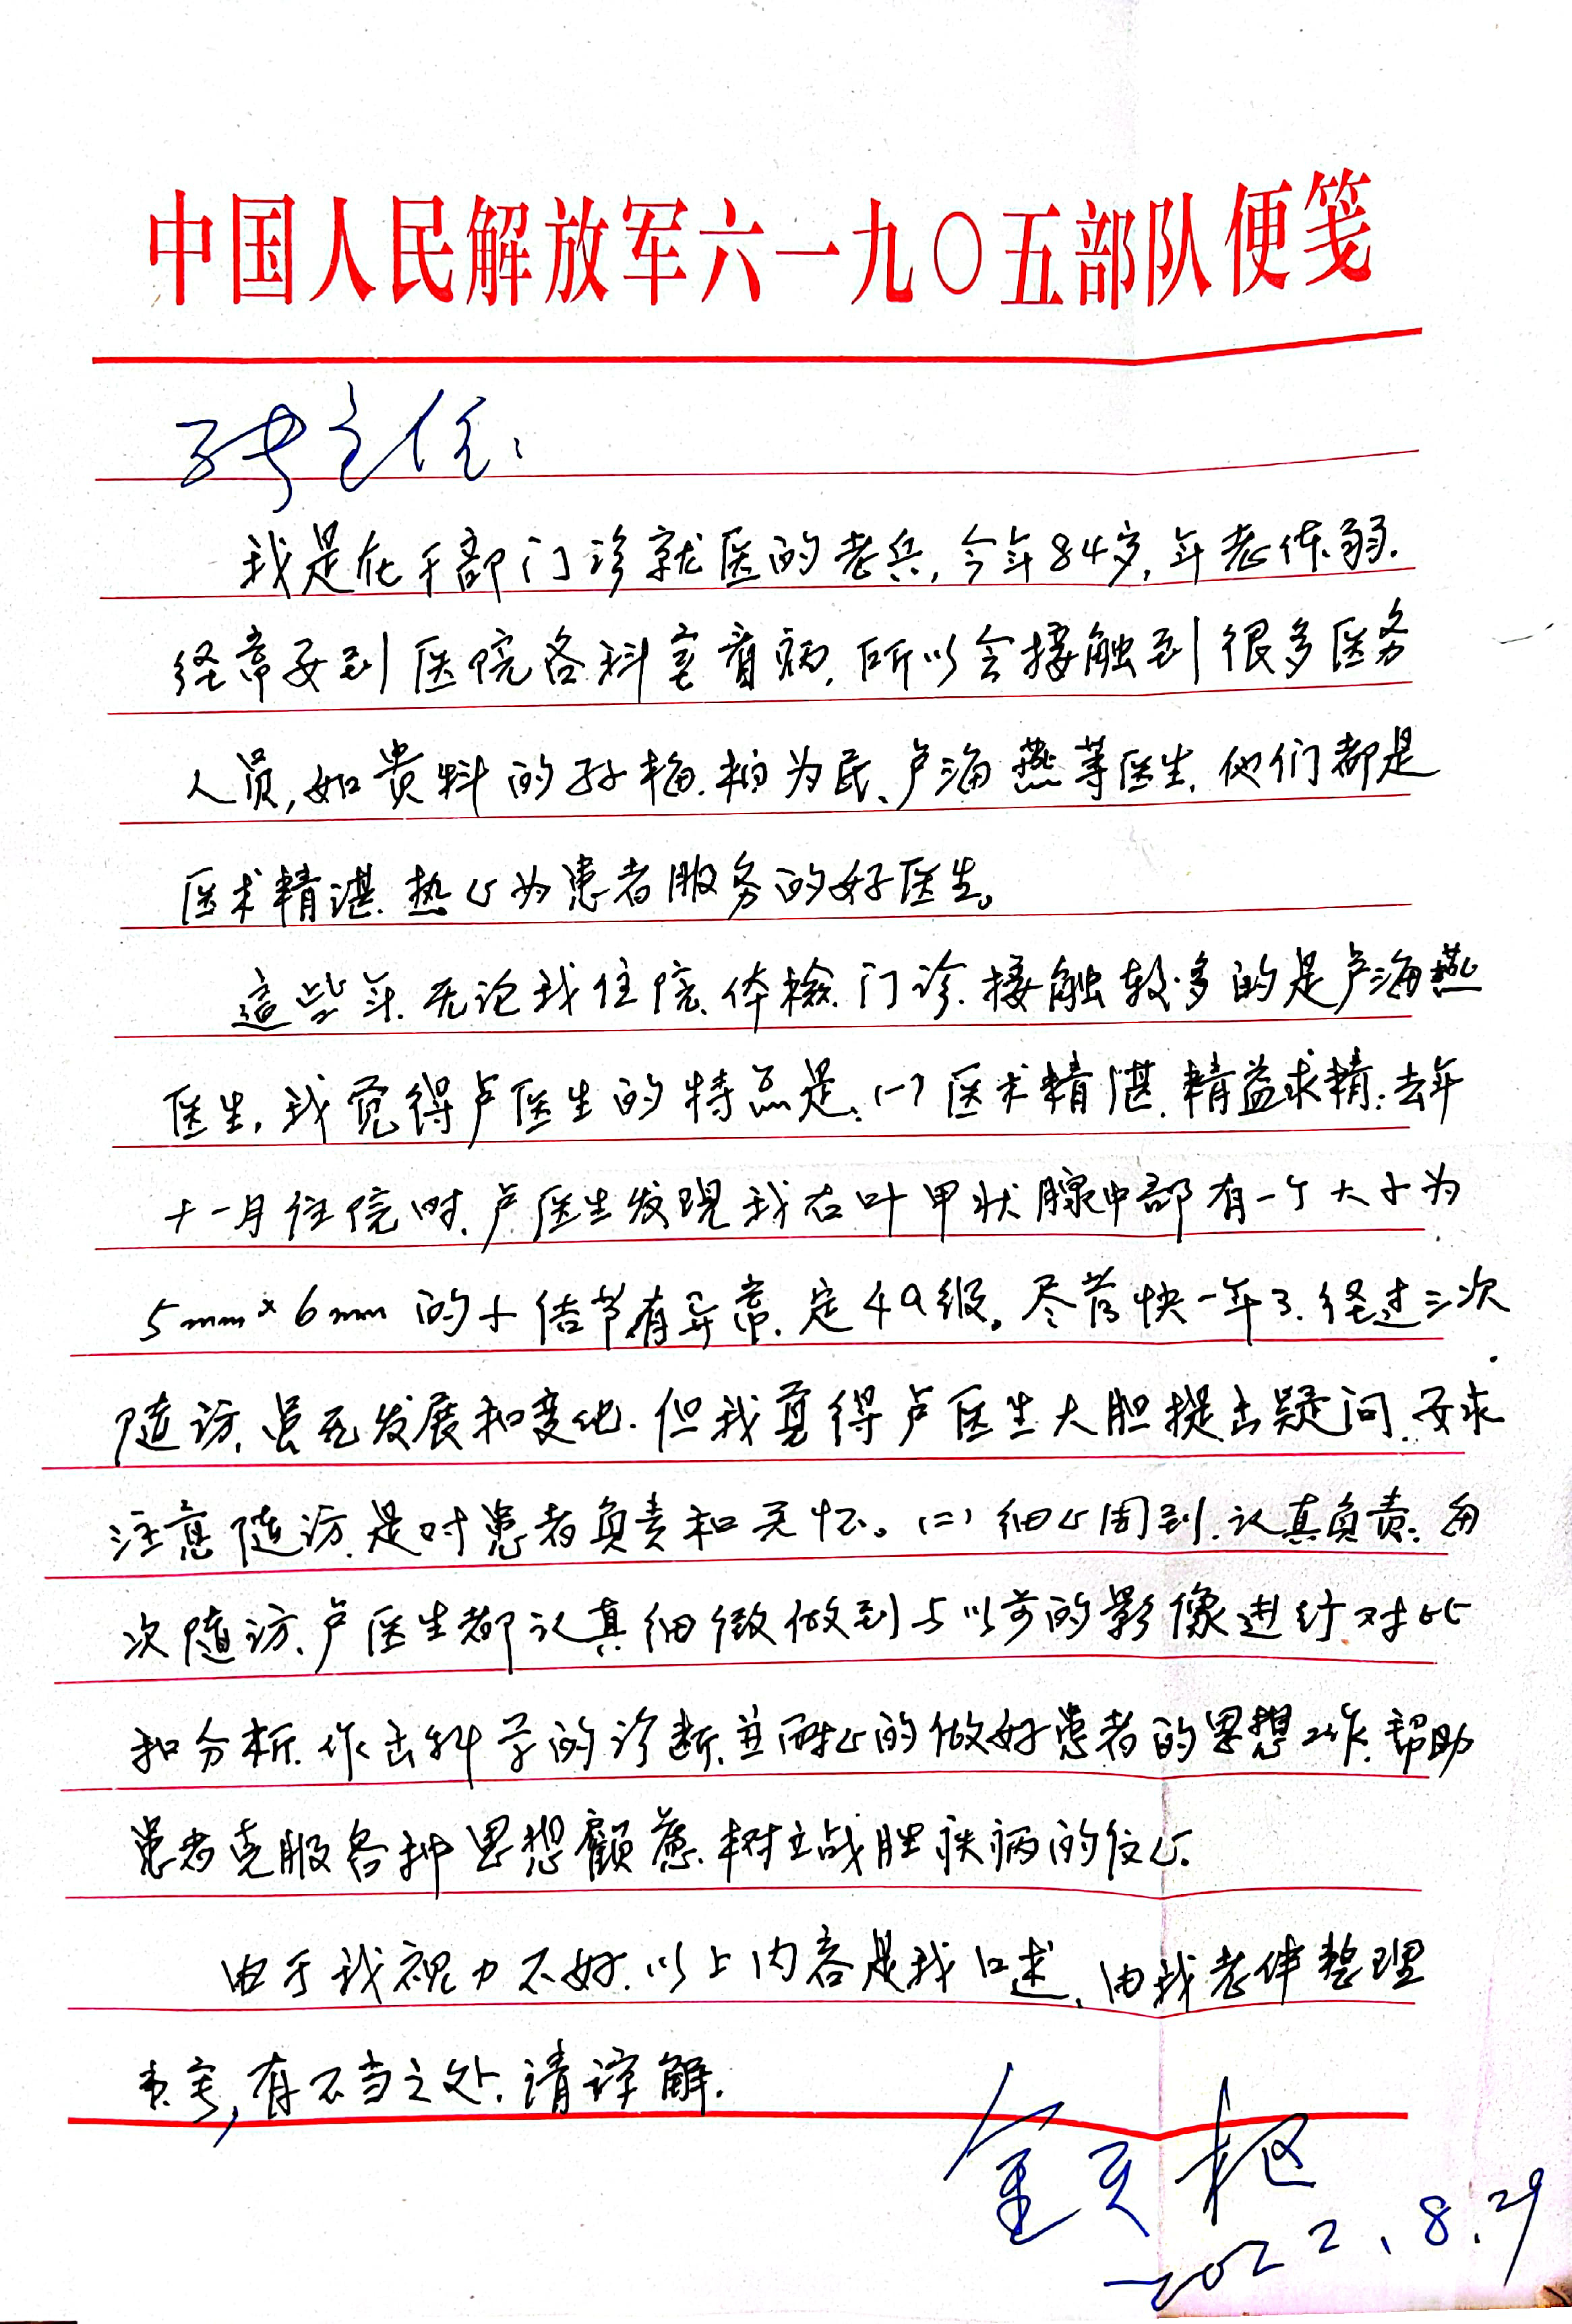 中国人民解放军六一九〇五部队便笺
张主任:
我是在干部门诊就医的老兵,今年84岁,年老体弱.
经常要到医院各科室看病,所以会接触到很多医务
人员,如贵科的孙梅.柏为民、卢海燕等医生,他们都是
医术精湛.热心为患者服务的好医生。
這些年.无论我住院、体檢.门诊.接触较多的是卢海燕
医生,我觉得卢医生的特点是:(一)医术精湛.精益求精:去年
十一月住院时.卢医生发现我右叶甲状腺中部有一个大小为
5mm×6mm的小结节有异常.定4a级。尽管快一年了.经过三次
随访.虽无发展和变化.但我觉得卢医生大胆提出疑问.要求
注意随访.是对患者负责和关怀。(二)细心周到.认真负责.每
次随访、卢医生都认真细微做到与以前的影像进行对比
和分析.作出科学的诊断.並耐心的做好患者的思想工作.帮助
患者克服各种思想顧慮.树立战胜疾病的信心.
由于我视力不好.以上内容是我口述、由我老伴整理
书写,有不当之处.请谅解.
金天枢
2022、8.29